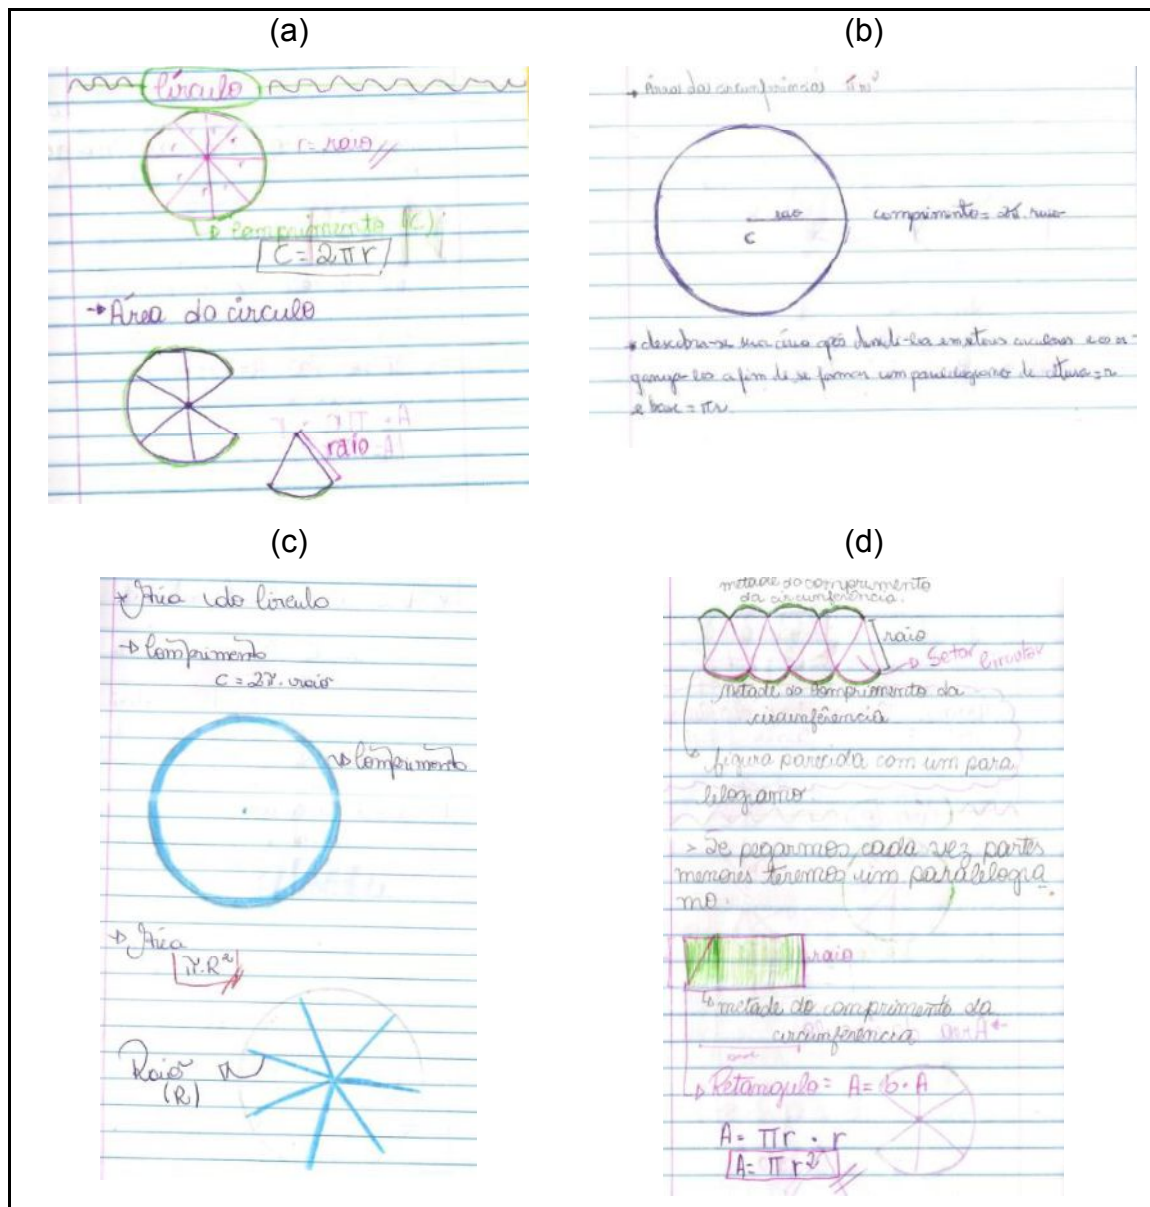 (a)
Círculo
r = raio
Comprimento (C)
C = 2πr
→ Área do círculo
raio
(b)
→ Áreas das circunferências πr²
raio
comprimento = 2π.raio
C
descobre-se sua área após dividi-las em setores circulares e
a fim de se formar um paralelogramo de altura = r
e base = πr.
(c)
Área do Círculo
→ Comprimento
C = 2π.raio
→ Comprimento
→ Área
π.R²
Raio
(R)
(d)
metade do comprimento
da circunferência.
raio
→ Setor Circular
Metade do Comprimento da
circunferência
figura parecida com um para
lelogramo.
> Se pegarmos cada vez partes
menores teremos um paralelogra
mo.
raio
metade do comprimento da
circunferência
base
→ Retangulo: A = b . A
A = πr . r
A = πr²